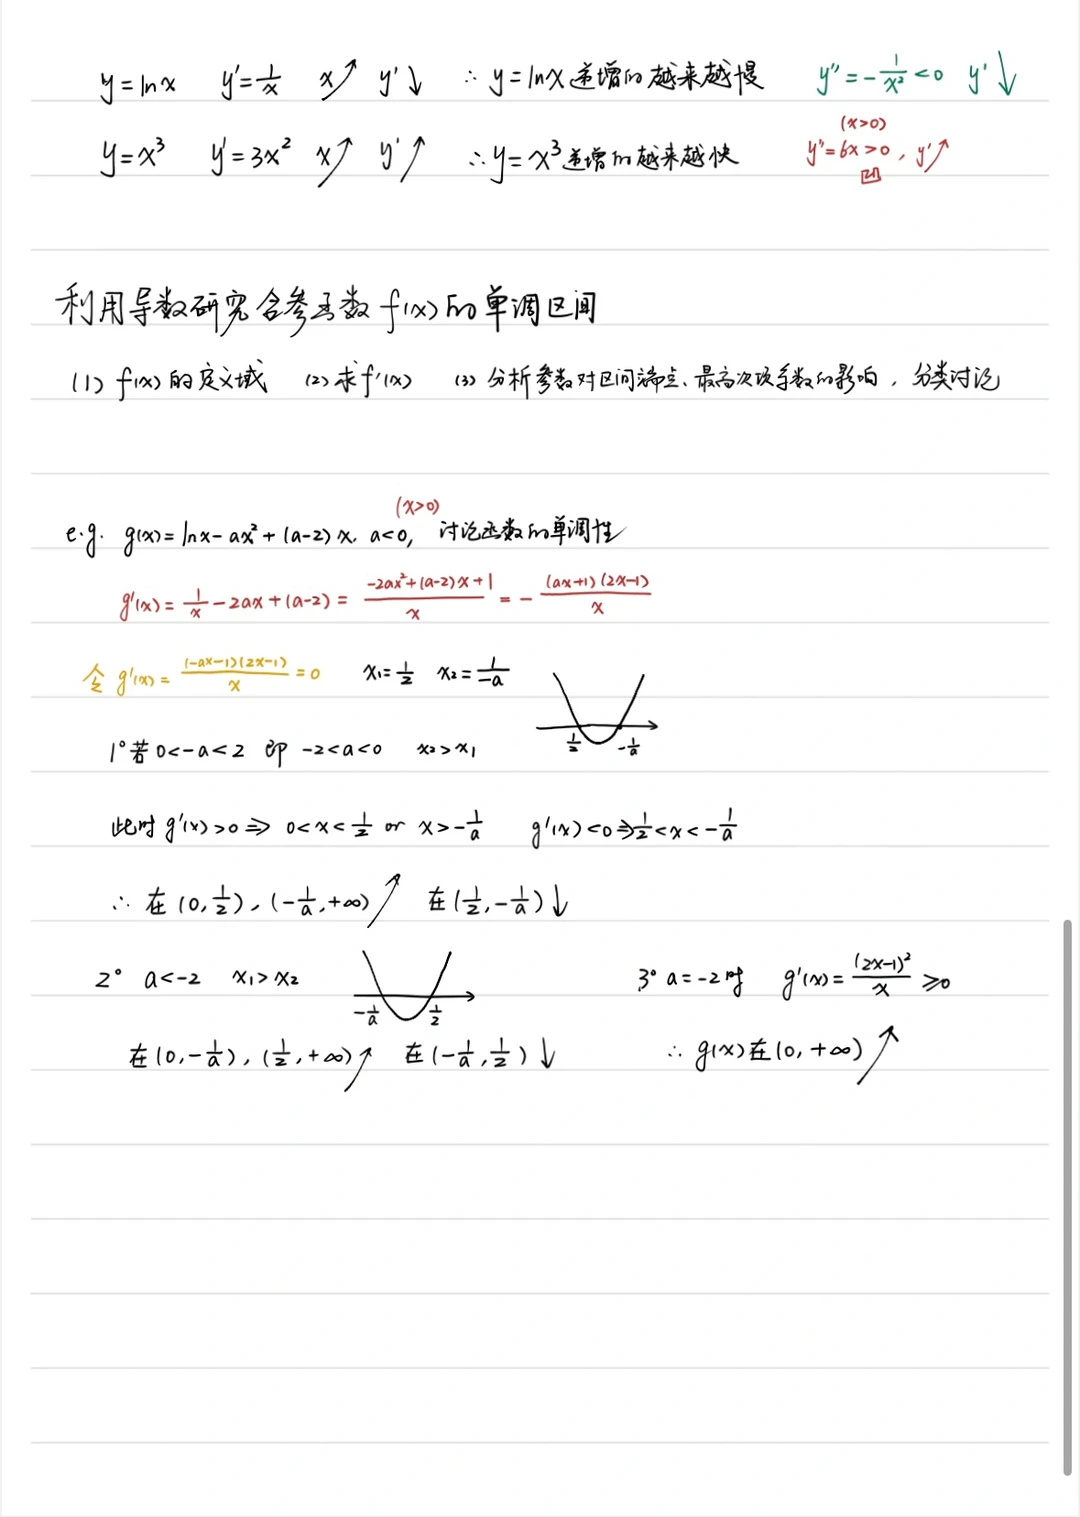 y=lnx y'=1/x x↗ y'↓ ∴ y=lnx递增的越来越慢 y''=-1/x²<0 y'↓
(x>0)
y=x³ y'=3x² x↗ y'↗ ∴y=x³递增的越来越快 y''=6x>0, y'↗
凹
利用导数研究含参函数f(x)的单调区间
(1) f(x)的定义域 (2)求f'(x) (3) 分析参数对区间端点、最高次项系数的影响，分类讨论
(x>0)
e.g. g(x)=lnx-ax²+(a-2)x. a<0, 讨论函数的单调性
g'(x)=1/x-2ax+(a-2)=(-2ax²+(a-2)x+1)/x=-(ax+1)(2x-1)/x
令 g'(x)=(-ax-1)(2x-1)/x=0 x₁=1/2 x₂=1/-a
1/2 -1/a
1°若0<-a<2 即 -2<a<0 x₂>x₁
此时g'(x)>0⇒ 0<x<1/2 or x>-1/a g'(x)<0⇒1/2<x<-1/a
∴ 在(0,1/2),(-1/a,+∞)↗ 在(1/2,-1/a)↓
2° a<-2 x₁>x₂
-1/a 1/2
在(0,-1/a),(1/2,+∞)↗ 在(-1/a,1/2)↓
3° a=-2时 g'(x)=(2x-1)²/x ≥0
∴ g(x)在(0,+∞)↗